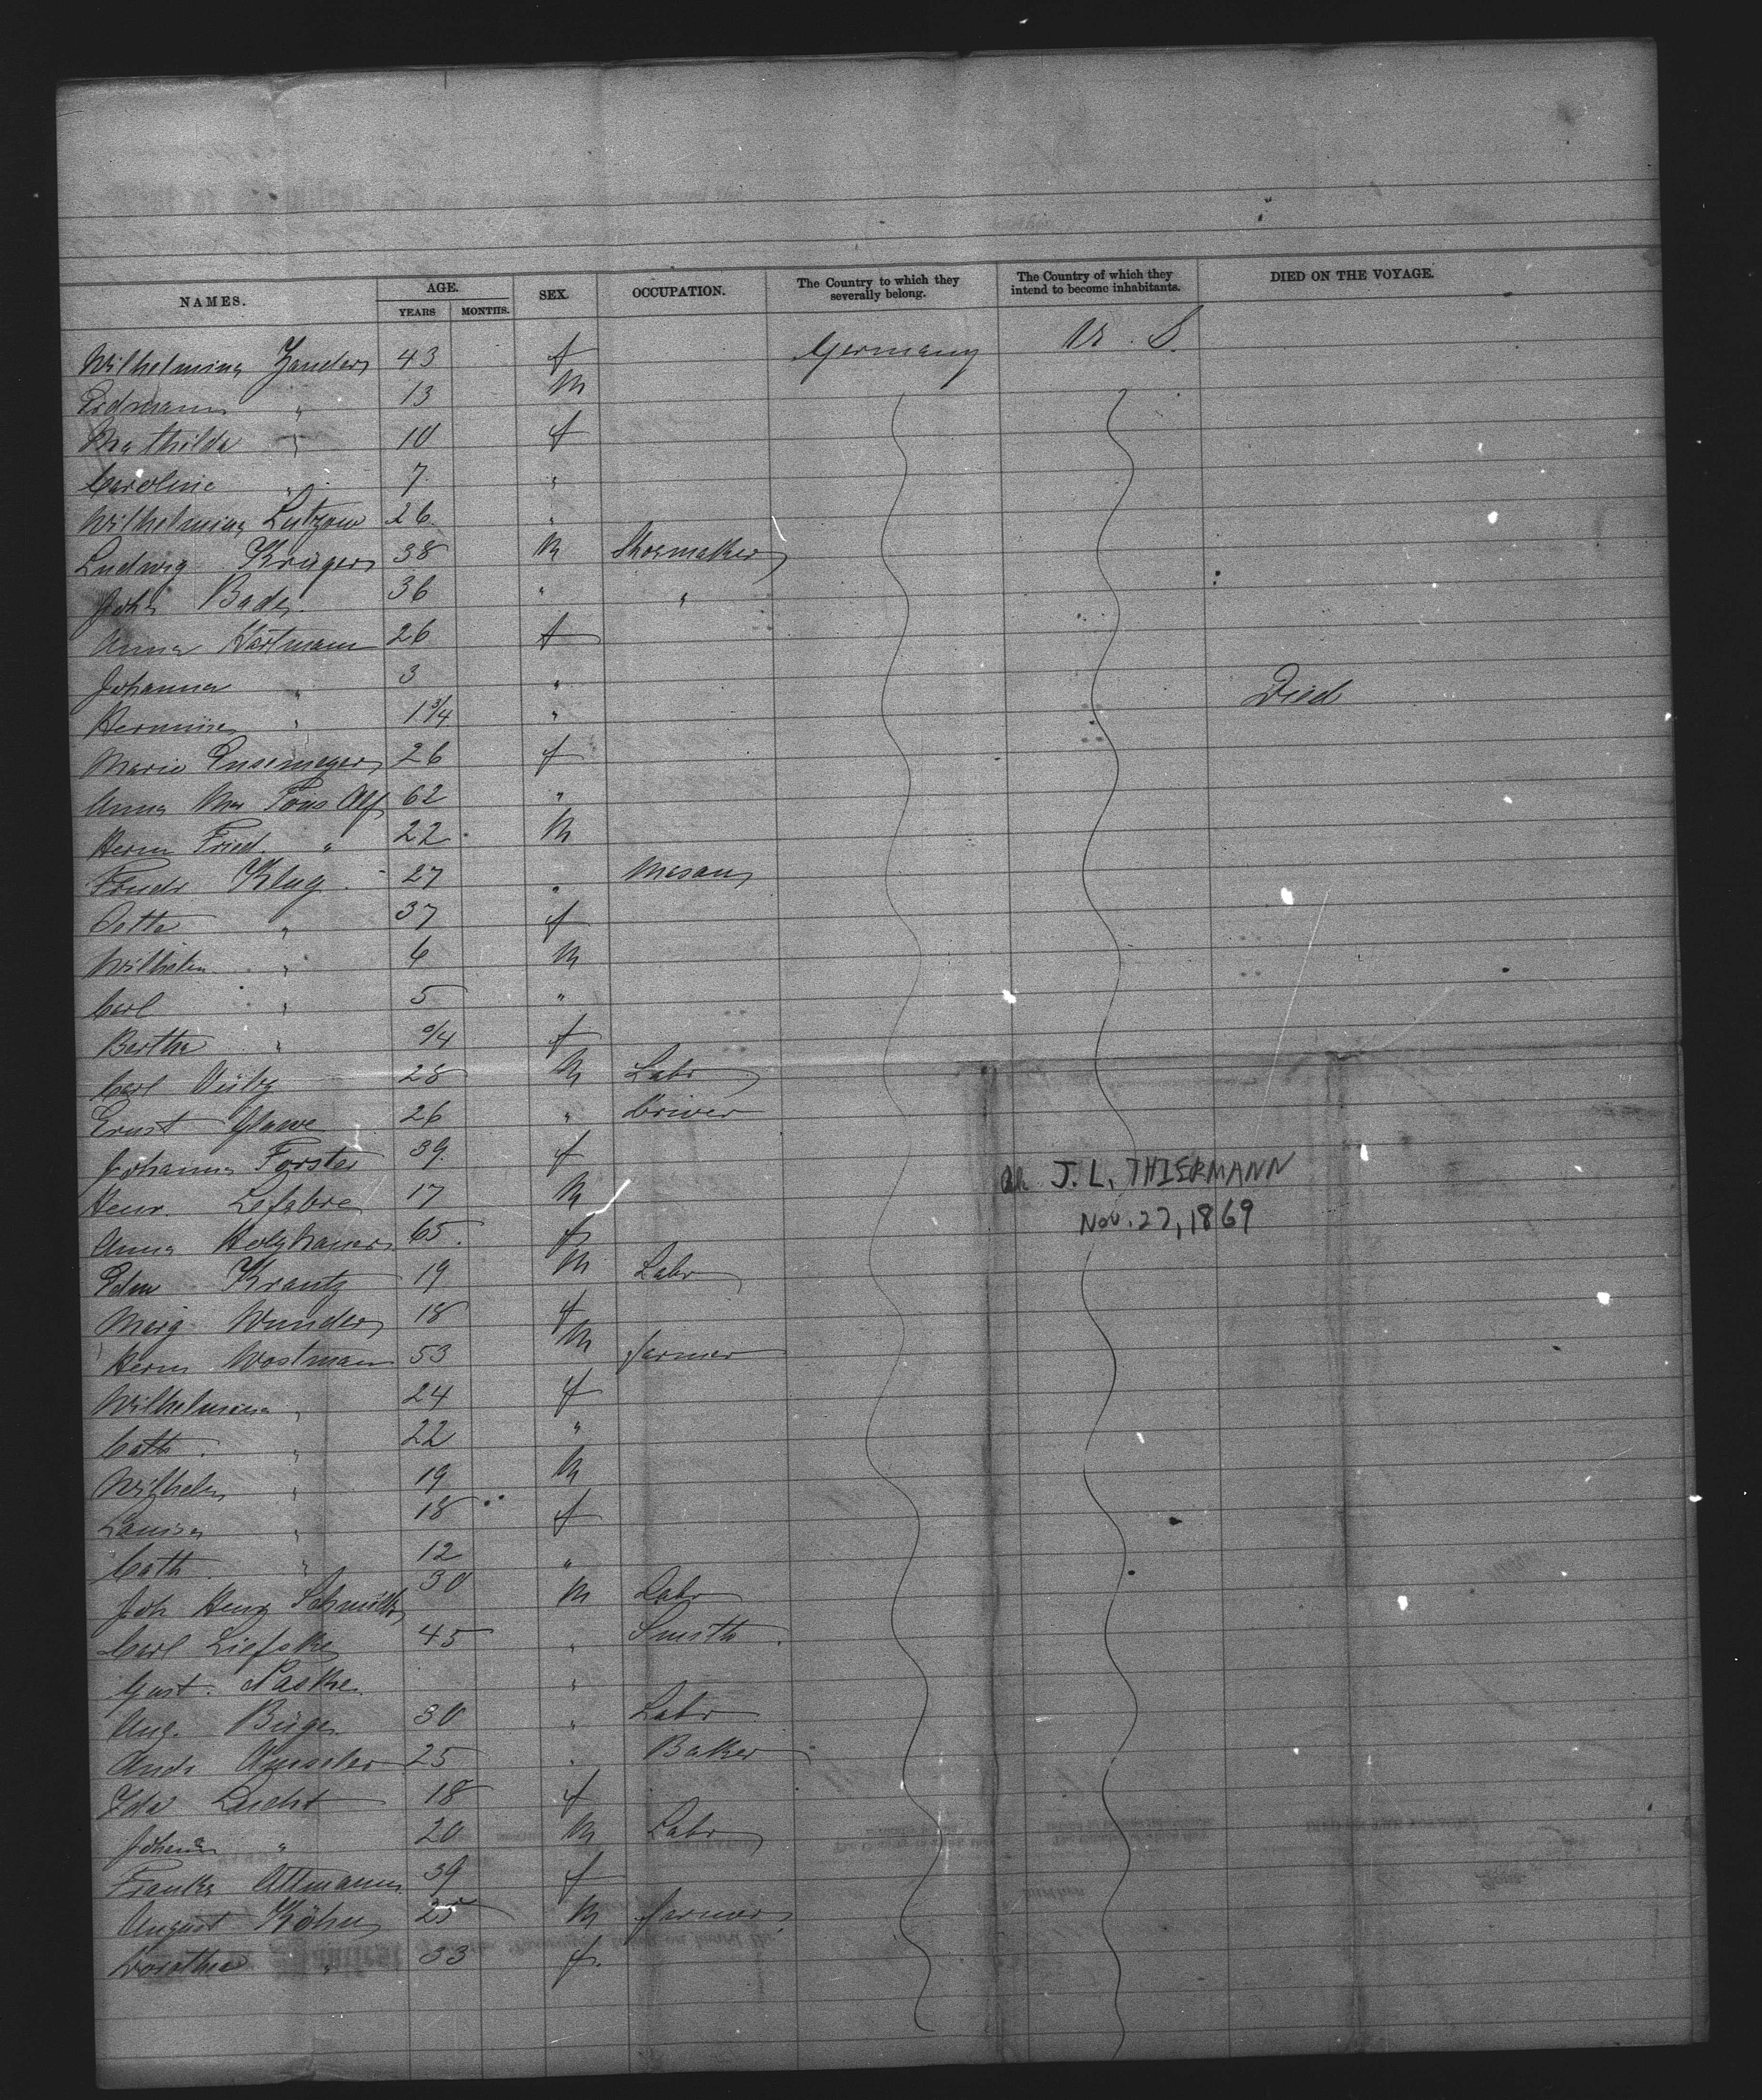 NAMES. AGE. YEARS MONTHS. SEX. OCCUPATION. The Country to which they severally belong. The Country of which they intend to become inhabitants. DIED ON THE VOYAGE.
Wilhelmina Zander 43 f Germany U. S.
Erdmann " 13 M
Mathilda " 10 f
Caroline " 7 "
Wilhelmina Lutzow 26 "
Ludwig Krüger 38 M Shoemaker
Joh. Bade 36 " "
Anna Hartmann 26 f
Johanna " 3 "
Hermine " 1 3/4 " Died
Marie Ensemeyer 26 f
Anna Mar Tons Alf 62 "
Herm Fried. " 22 M
Friedr Klug 27 " Mason
Dette " 37 f
Wilhelm " 6 M
Carl " 5 "
Bertha " 9/4 f
Carl 28 M Labr
Ernst Glawe 26 " Driver
Johanna Forster 39 f
Ah J. L. THIERMANN
Henr. Lefabre 17 M
Nov. 27, 1869
Anna Holzhauer 65 f
Edw Krantz 19 M Labr
Marg Wunder 18 f
Herm Wostman 53 M farmer
Wilhelmina " 24 f
Cath. " 22 "
Wilhelm " 19 M
Louisa " 18 f
Cath. " 12 "
Joh Henry Schmidt 30 M Labr
Carl Liefske 45 " Smith
Gust. Paske "
Aug. Büge 30 " Labr
Andr Amsler 25 " Baker
Ida Lucht 18 f
Johann " 20 M Labr
Franka Altmann 39 f
August Köhn 25 M farmer
Dorothea " 33 f